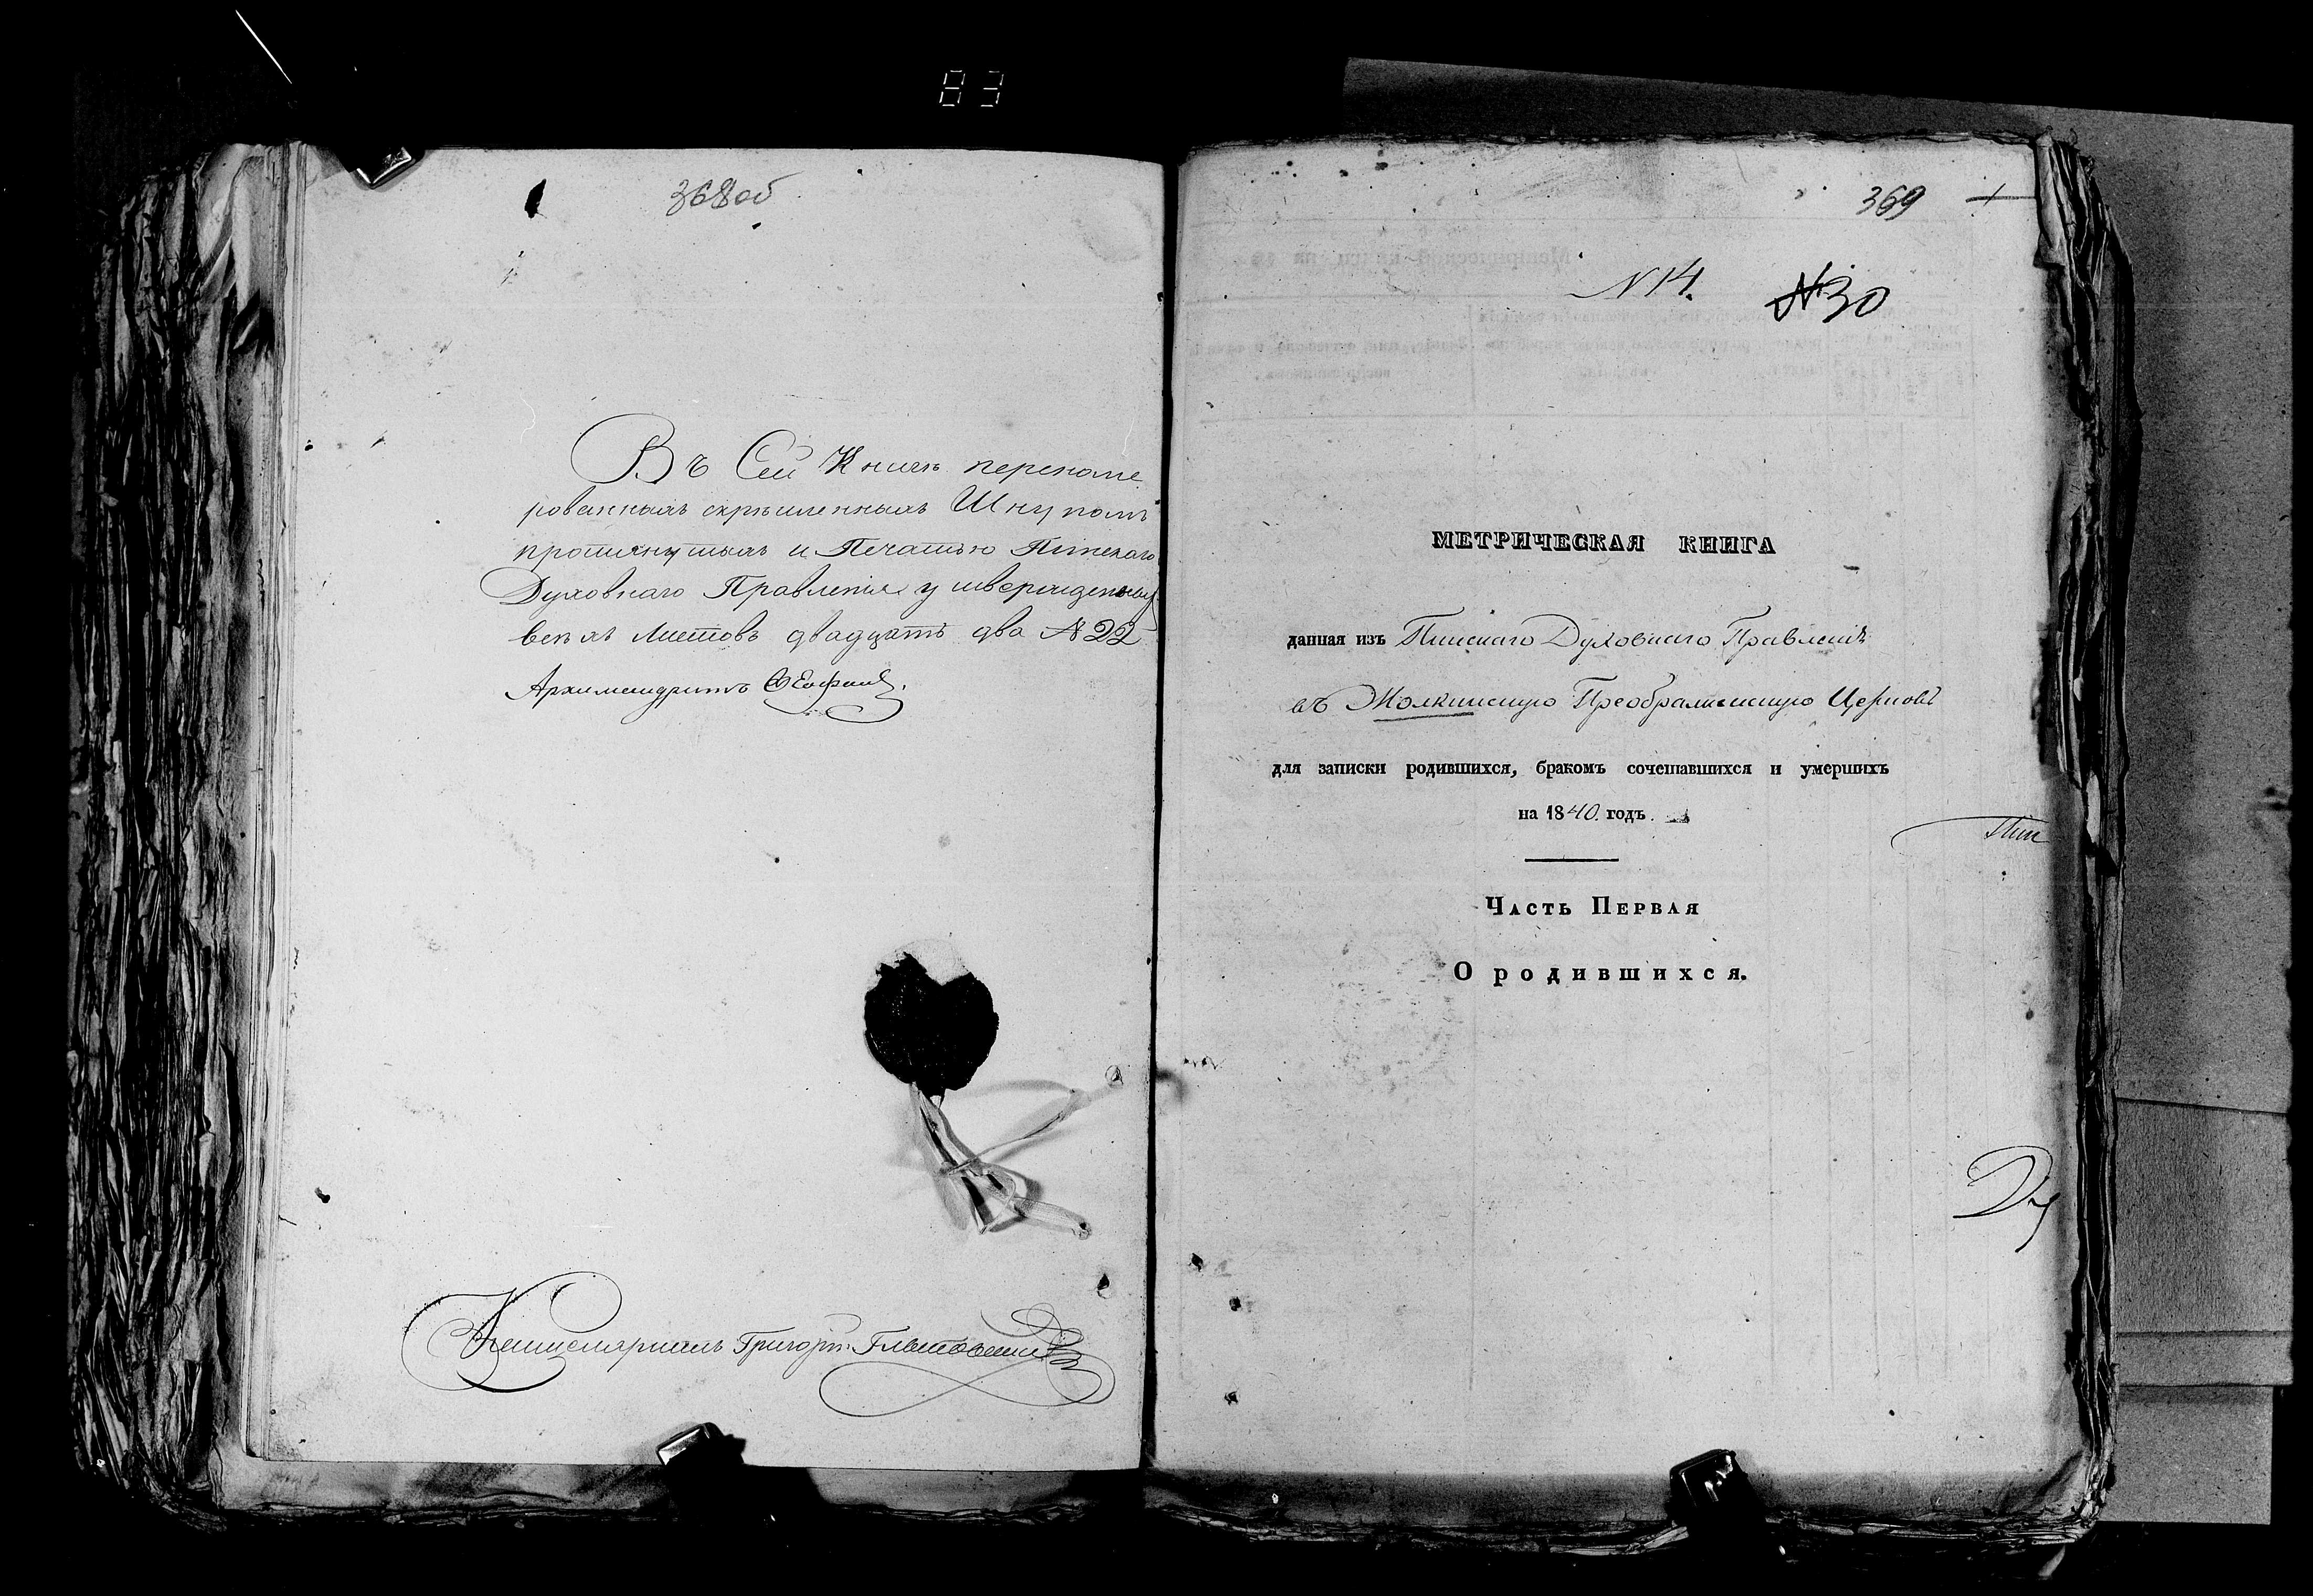 83
368об
Въ Сей Книгѣ переноме
рованныхъ скрѣпленныхъ Шнуромъ
протянутыхъ и Печатью Пинскаго
Духовнаго Правленія утвержденныхъ
всѣхъ Листовъ двадцать два № 22
Архимандритъ
Канцеляристъ Григорій
369
N 14.
N 30
МЕТРИЧЕСКАЯ КНИГА
данная изъ Пинскаго Духовнаго Правленія
въ Жолкинскую Преображенскую Церковь
для записки родившихся, бракомъ сочетавшихся и умершихъ
на 1840. годъ.
Пин
ЧАСТЬ ПЕРВАЯ
О родившихся.
Ду